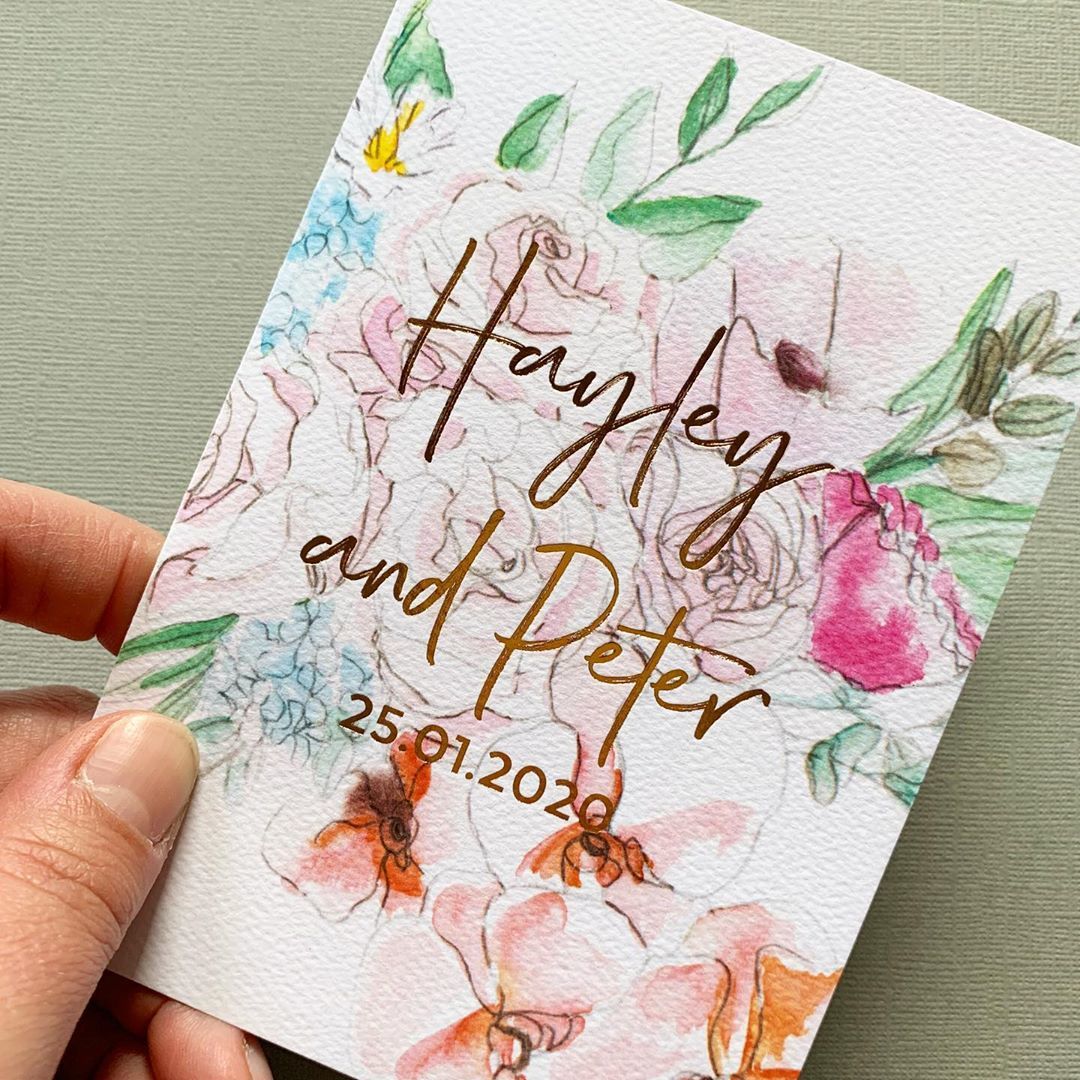 Hayley
and Peter
25.01.2020